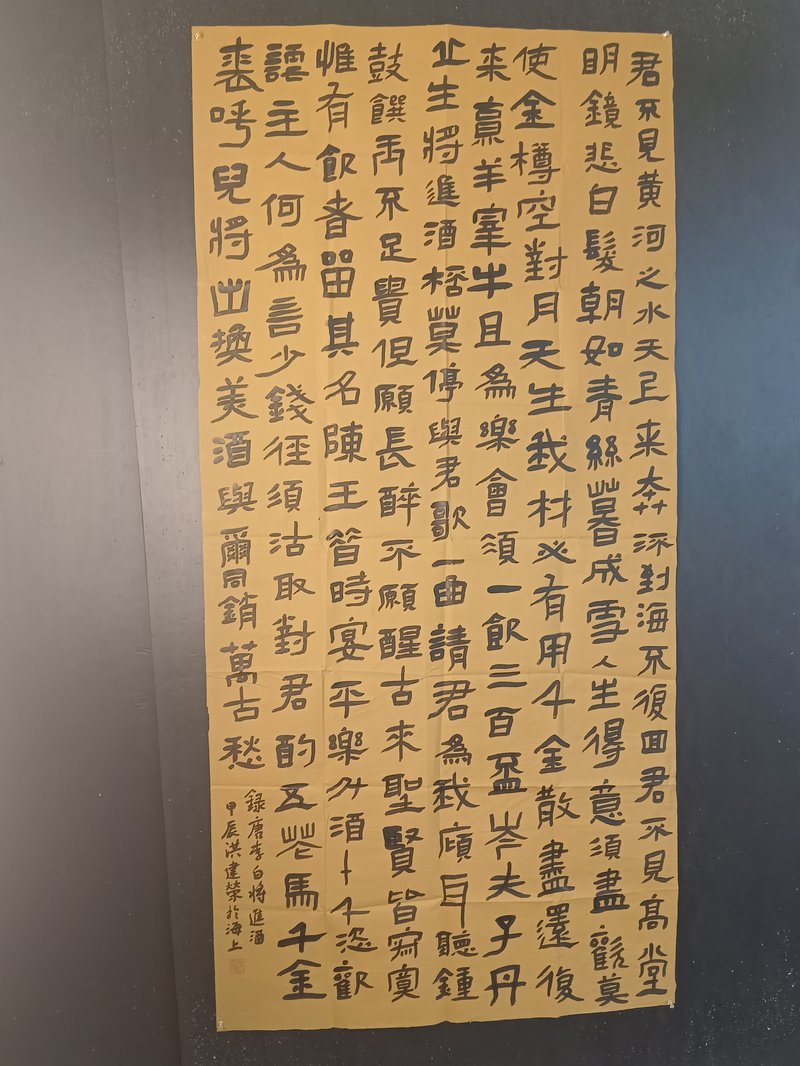 君不見黃河之水天上来奔流到海不復回君不見高堂
明鏡悲白髮朝如青絲暮成雪人生得意須盡歡莫
使金樽空對月天生我材必有用千金散盡還復
来烹羊宰牛且為樂會須一飲三百盃岑夫子丹
丘生將進酒桮莫停與君歌一曲請君為我傾耳聽鍾
鼓饌玉不足貴但願長醉不願醒古來聖賢皆寂寞
惟有飲者留其名陳王昔時宴平樂斗酒十千恣歡
謔主人何為言少錢徑須沽取對君酌五花馬千金
裘呼兒將出換美酒與爾同銷萬古愁
録唐李白將進酒
甲辰洪建榮於海上